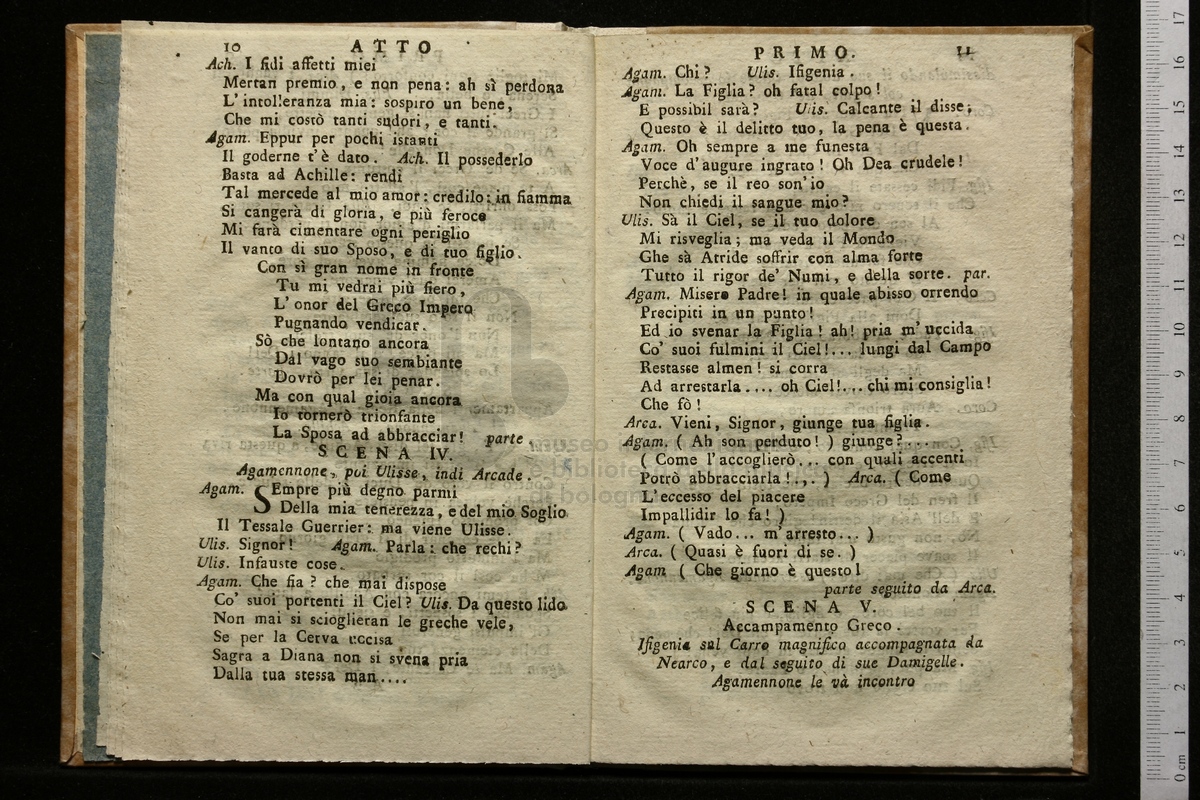 10 ATTO
Ach. I fidi affetti miei
Mertan premio, e non pena: ah sì perdona
L'intolleranza mia: sospiro un bene,
Che mi costò tanti sudori, e tanti.
Agam. Eppur per pochi istanti
Il goderne t'è dato. Ach. Il possederlo
Basta ad Achille: rendi
Tal mercede al mio amor: credilo: in fiamma
Si cangerà di gloria, e più feroce
Mi farà cimentare ogni periglio
Il vanto di suo Sposo, e di tuo figlio.
Con sì gran nome in fronte
Tu mi vedrai più fiero,
L'onor del Greco Impero
Pugnando vendicar.
Sò che lontano ancora
Dal vago suo sembiante
Dovrò per lei penar.
Ma con qual gioia ancora
Io tornerò trionfante
La Sposa ad abbracciar! parte
SCENA IV.
Agamennone, poi Ulisse, indi Arcade.
Agam. SEmpre più degno parmi
Della mia tenerezza, e del mio Soglio
Il Tessale Guerrier: ma viene Ulisse.
Ulis. Signor! Agam. Parla: che rechi?
Ulis. Infauste cose.
Agam. Che fia? che mai dispose
Co' suoi portenti il Ciel? Ulis. Da questo lido
Non mai si scioglieran le greche vele,
Se per la Cerva uccisa
Sagra a Diana non si svena pria
Dalla tua stessa man....
PRIMO. 11
Agam. Chi? Ulis. Ifigenia.
Agam. La Figlia? oh fatal colpo!
E possibil sarà? Ulis. Calcante il disse;
Questo è il delitto tuo, la pena è questa.
Agam. Oh sempre a me funesta
Voce d'augure ingrato! Oh Dea crudele!
Perchè, se il reo son'io
Non chiedi il sangue mio?
Ulis. Sà il Ciel, se il tuo dolore
Mi risveglia; ma veda il Mondo
Ghe sà Atride soffrir con alma forte
Tutto il rigor de' Numi, e della sorte. par.
Agam. Misero Padre! in quale abisso orrendo
Precipiti in un punto!
Ed io svenar la Figlia! ah! pria m'uccida
Co' suoi fulmini il Ciel!... lungi dal Campo
Restasse almen! si corra
Ad arrestarla.... oh Ciel!... chi mi consiglia!
Che fò!
Arca. Vieni, Signor, giunge tua figlia.
Agam. ( Ah son perduto! ) giunge?....
( Come l'accoglierò... con quali accenti
Potrò abbracciarla!... ) Arca. ( Come
L'eccesso del piacere
Impallidir lo fa! )
Agam. ( Vado... m'arresto... )
Arca. ( Quasi è fuori di se. )
Agam ( Che giorno è questo!
parte seguito da Arca.
SCENA V.
Accampamento Greco.
Ifigenia sul Carro magnifico accompagnata da
Nearco, e dal seguito di sue Damigelle.
Agamennone le và incontro
museo
e biblioteca
di bologna
0 cm 1 2 3 4 5 6 7 8 9 10 11 12 13 14 15 16 17